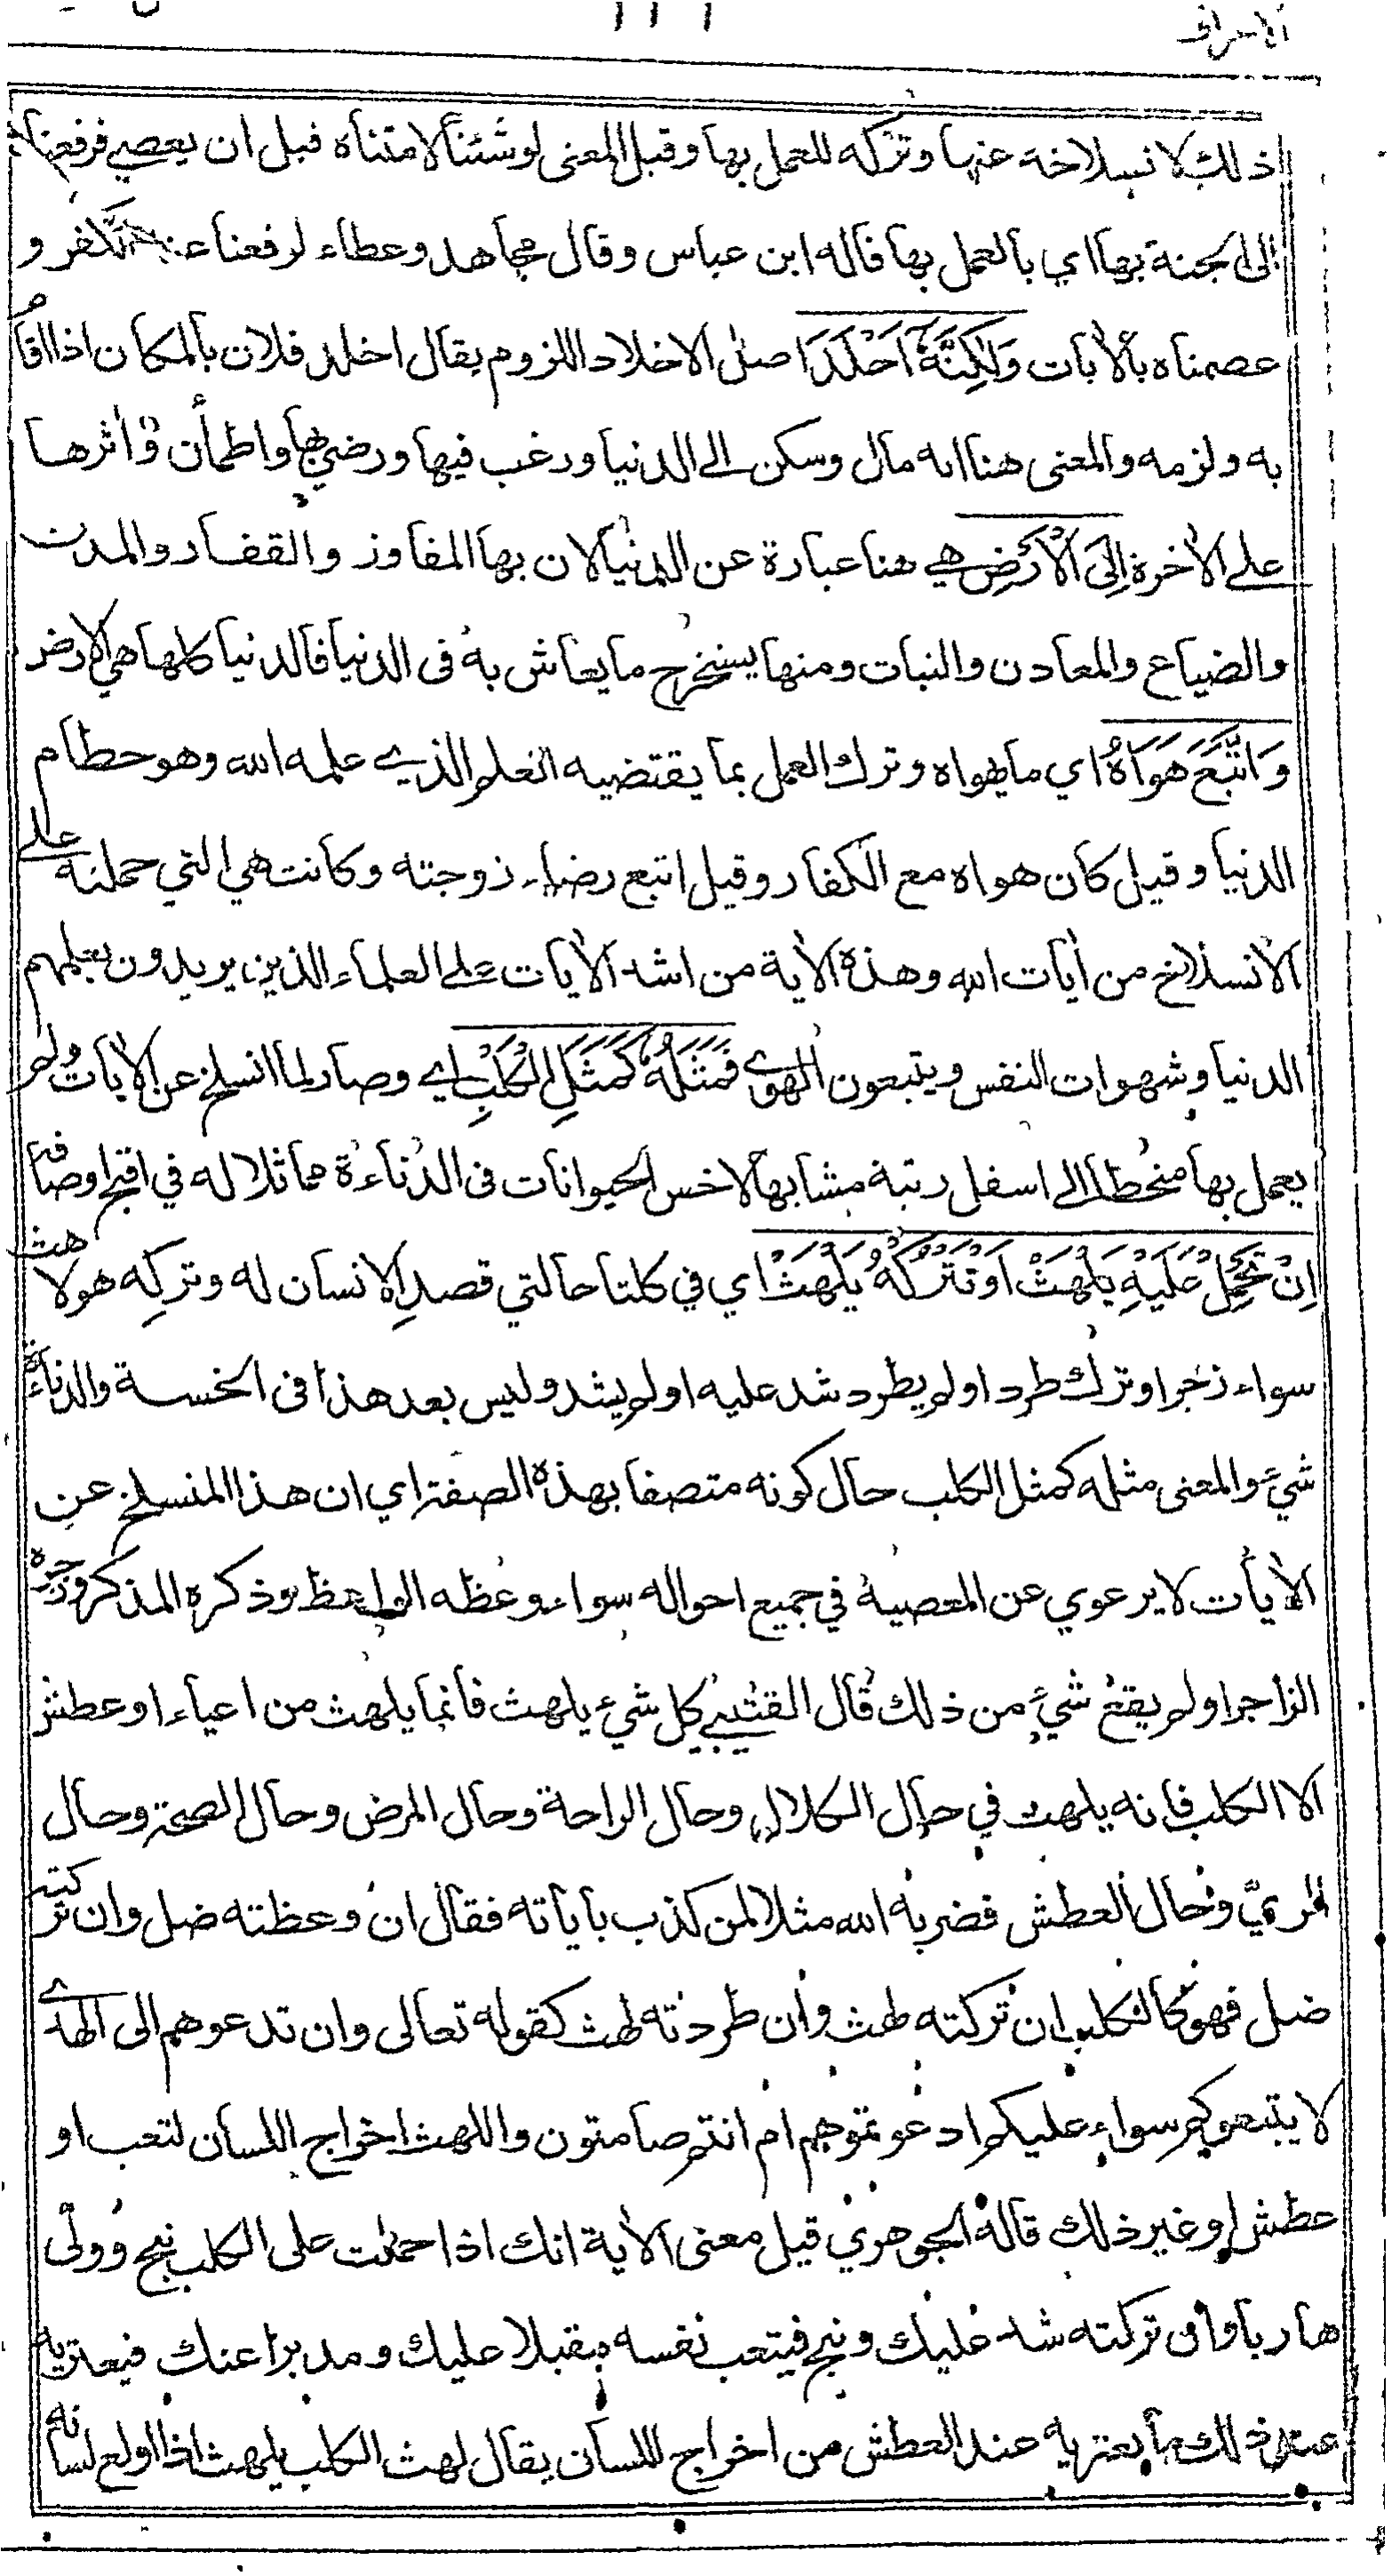 الاعراف
ذلك لانسلاخه عنها وتركه للعمل بها وقيل المعنى لو شئنا لامتناه قبل ان يعصي فرفعناه
الى الجنة بها اي بالعمل بها قاله ابن عباس وقال مجاهد وعطاء لرفعنا عنه الكفر و
عصمناه بالأيات وَلٰكِنَّهُ أَخْلَدَ اصل الاخلاد اللزوم يقال اخلد فلان بالمكان اذا اقام
به ولزمه والمعنى هنا انه مال وسكن الى الدنيا ورغب فيها ورضي بها واطمأن وأثرها
على الأخرة إِلَى الْأَرْضِ هي هنا عبارة عن الدنيا لان بها المفاوز والقفار والمدن
والضياع والمعادن والنبات ومنها يستخرج ما يعاش به فى الدنيا فالدنيا كلها هي الارض
وَاتَّبَعَ هَوَاهُ اي ما يهواه وترك العمل بما يقتضيه العلم الذي علمه الله وهو حطام
الدنيا وقيل كان هواه مع الكفار وقيل اتبع رضاء زوجته وكانت هي التي حملته على
الانسلاخ من أيات الله وهذه الأية من اشد الأيات على العلماء الذين يريدون بعلمهم
الدنيا وشهوات النفس ويتبعون الهوى فَمَثَلُهُ كَمَثَلِ الْكَلْبِ اي وصار لما انسلخ عن الأيات ولم
يعمل بها منحطا الى اسفل رتبة مشابها لاخس الحيوانات فى الدناءة مماثلا له في اقبح اوصافه
إِنْ تَحْمِلْ عَلَيْهِ يَلْهَثْ أَوْ تَتْرُكْهُ يَلْهَثْ اي في كلتا حالتي قصد الانسان له وتركه هو لاهث
سواء زجر او ترك طرد او لم يطرد شد عليه او لم يشد وليس بعد هذا فى الخسة والدناءة
شيء والمعنى مثله كمثل الكلب حال كونه متصفا بهذه الصفة اي ان هذا المنسلخ عن
الأيات لا يرعوي عن المعصية في جميع احواله سواء وعظه الواعظ وذكره المذكر وزجره
الزاجر او لم يقع شيء من ذلك قال القتيبي كل شيء يلهث فانما يلهث من اعياء او عطش
الا الكلب فانه يلهث في حال الكلال وحال الراحة وحال المرض وحال الصحة وحال
الري وحال العطش فضربه الله مثلا لمن كذب بأياته فقال ان وعظته ضل وان تركته
ضل فهو كالكلب ان تركته لهث وان طردته لهث كقوله تعالى وان تدعوهم الى الهدى
لا يتبعوكم سواء عليكم ادعوتموهم ام انتم صامتون واللهث اخراج اللسان لتعب او
عطش او غير ذلك قاله الجوهري قيل معنى الأية انك اذا حملت على الكلب نبح وولى
هاربا وان تركته شد عليك ونبح فيتعب نفسه مقبلا عليك ومدبرا عنك فيعتريه
عند ذلك ما يعتريه عند العطش من اخراج اللسان يقال لهث الكلب يلهث اذا اولع لسانه